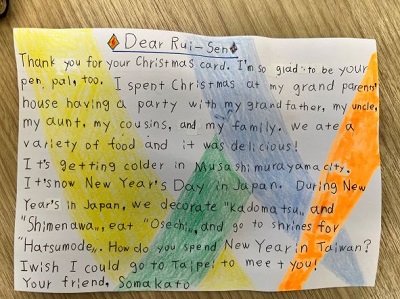 Dear Rui-Sen
Thank you for your Christmas card. I'm so glad to be your
pen pal, too. I spent Christmas at my grand parents'
house having a party with my grandfather, my uncle,
my aunt, my cousins, and my family. we ate a
variety of food and it was delicious!
It's getting colder in Musashimurayama city.
It's now New Year's Day in Japan. During New
Year's in Japan, we decorate "Kadomatsu„ and
"Shimenawa„, eat "Osechi„, and go to shrines for
"Hatsumode„. How do you spend New Year in Taiwan?
I wish I could go to Taipei to meet you!
Your friend, Soma kato